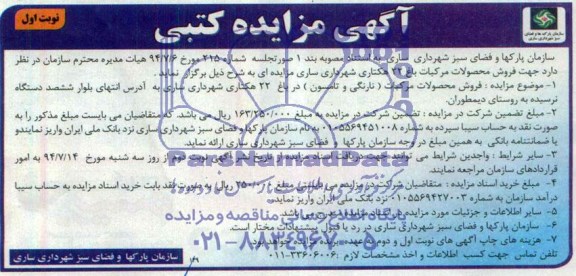 آگهی مزایده کتبی
نوبت اول
سازمان پارکها و فضای سبز شهرداری ساری
سازمان پارکها و فضای سبز شهرداری ساری به استناد مصوبه بند ۱ صورتجلسه شماره ۲۱۵ مورخ ۹۴/۷/۶ هیات مدیره محترم سازمان در نظر
دارد جهت فروش محصولات مرکبات باغ ۲۲ هکتاری شهرداری ساری مزایده ای به شرح ذیل برگزار نماید.
۱- موضوع مزایده : فروش محصولات مرکبات ( نارنگی و تامسون ) در باغ ۲۲ هکتاری شهرداری ساری به آدرس انتهای بلوار ششصد دستگاه
نرسیده به روستای دیمطوران.
۲- مبلغ تضمین شرکت در مزایده : تضمین شرکت در مزایده به مبلغ ۱۶۳/۲۵۰/۰۰۰ ریال می باشد که متقاضیان می بایست مبلغ مذکور را به
صورت نقد به حساب سیبا سپرده به شماره ۰۱۰۵۵۶۹۴۵۱۰۰۸ به نام سازمان پارکها و فضای سبز شهرداری ساری نزد بانک ملی ایران واریز نمایند و
یا ضمانتنامه بانکی به همین مبلغ در وجه سازمان پارکها و فضای سبز شهرداری ساری ارائه نمایند.
۳- سایر شرایط : واجدین شرایط می توانند جهت دریافت اسناد مزایده از تاریخ نشر آگهی نوبت دوم از روز سه شنبه مورخ ۹۴/۷/۱۴ به امور
قراردادهای سازمان مراجعه نمایند.
۴- مبلغ خرید اسناد مزایده : متقاضیان شرکت در مزایده می بایستی مبلغ ۲۵۰/۰۰۰ ریال به صورت نقد بابت خرید اسناد مزایده به حساب سیبا
درآمد به شماره ۰۱۰۵۵۶۹۴۲۷۰۰۳ نزد بانک ملی ایران واریز نمایند.
۵- سایر اطلاعات و جزئیات مورد مزایده در اسناد مزایده می باشد.
۶- سازمان پارکها و فضای سبز شهرداری ساری در رد یا قبول پیشنهادات مختار است.
۷- هزینه های چاپ آگهی های نوبت اول و دوم
تلفن تماس جهت کسب اطلاعات و اخذ مشخصات لازم : ۰۱۱-۳۳۶۰۶۰۰۶
سازمان پارکها و فضای سبز شهرداری ساری
ParsNamadData
پایگاه اطلاع رسانی مناقصه و مزایده
۰۲۱-۸۸۳۴۹۶۷۰-۵